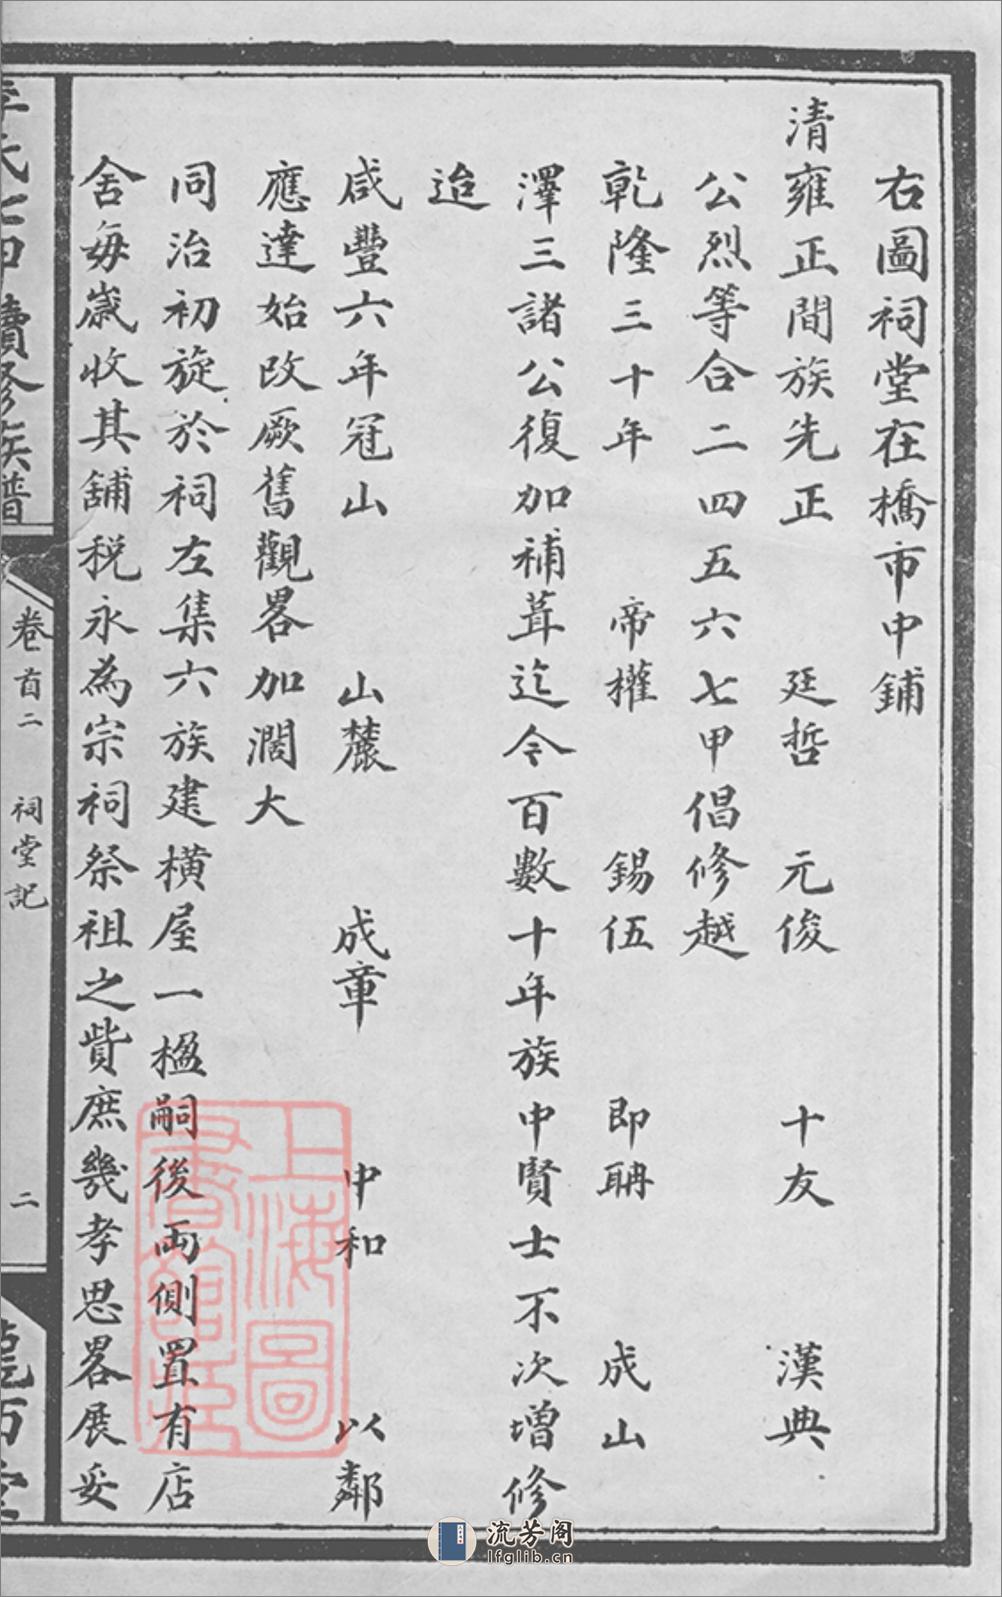 右圖祠堂在橋市中鋪
清雍正間族先正　廷哲　元俊　十友　漢典
公烈等合二四五六七甲倡修越
乾隆三十年　帝權　錫伍　即聃　成山
澤三諸公復加補葺迄今百數十年族中賢士不次增修
迨
咸豐六年冠山　山麓　成章　中和　以鄰
應達始改厥舊觀畧加濶大
同治初旋於祠左集六族建橫屋一楹嗣後両側置有店
舍每歲收其舖税永為宗祠祭祖之貲庶幾孝思畧展妥
李氏七甲續修族譜
卷首二　祠堂記
二
隴西堂
上海圖
書館藏
流芳阁
lfglib.cn